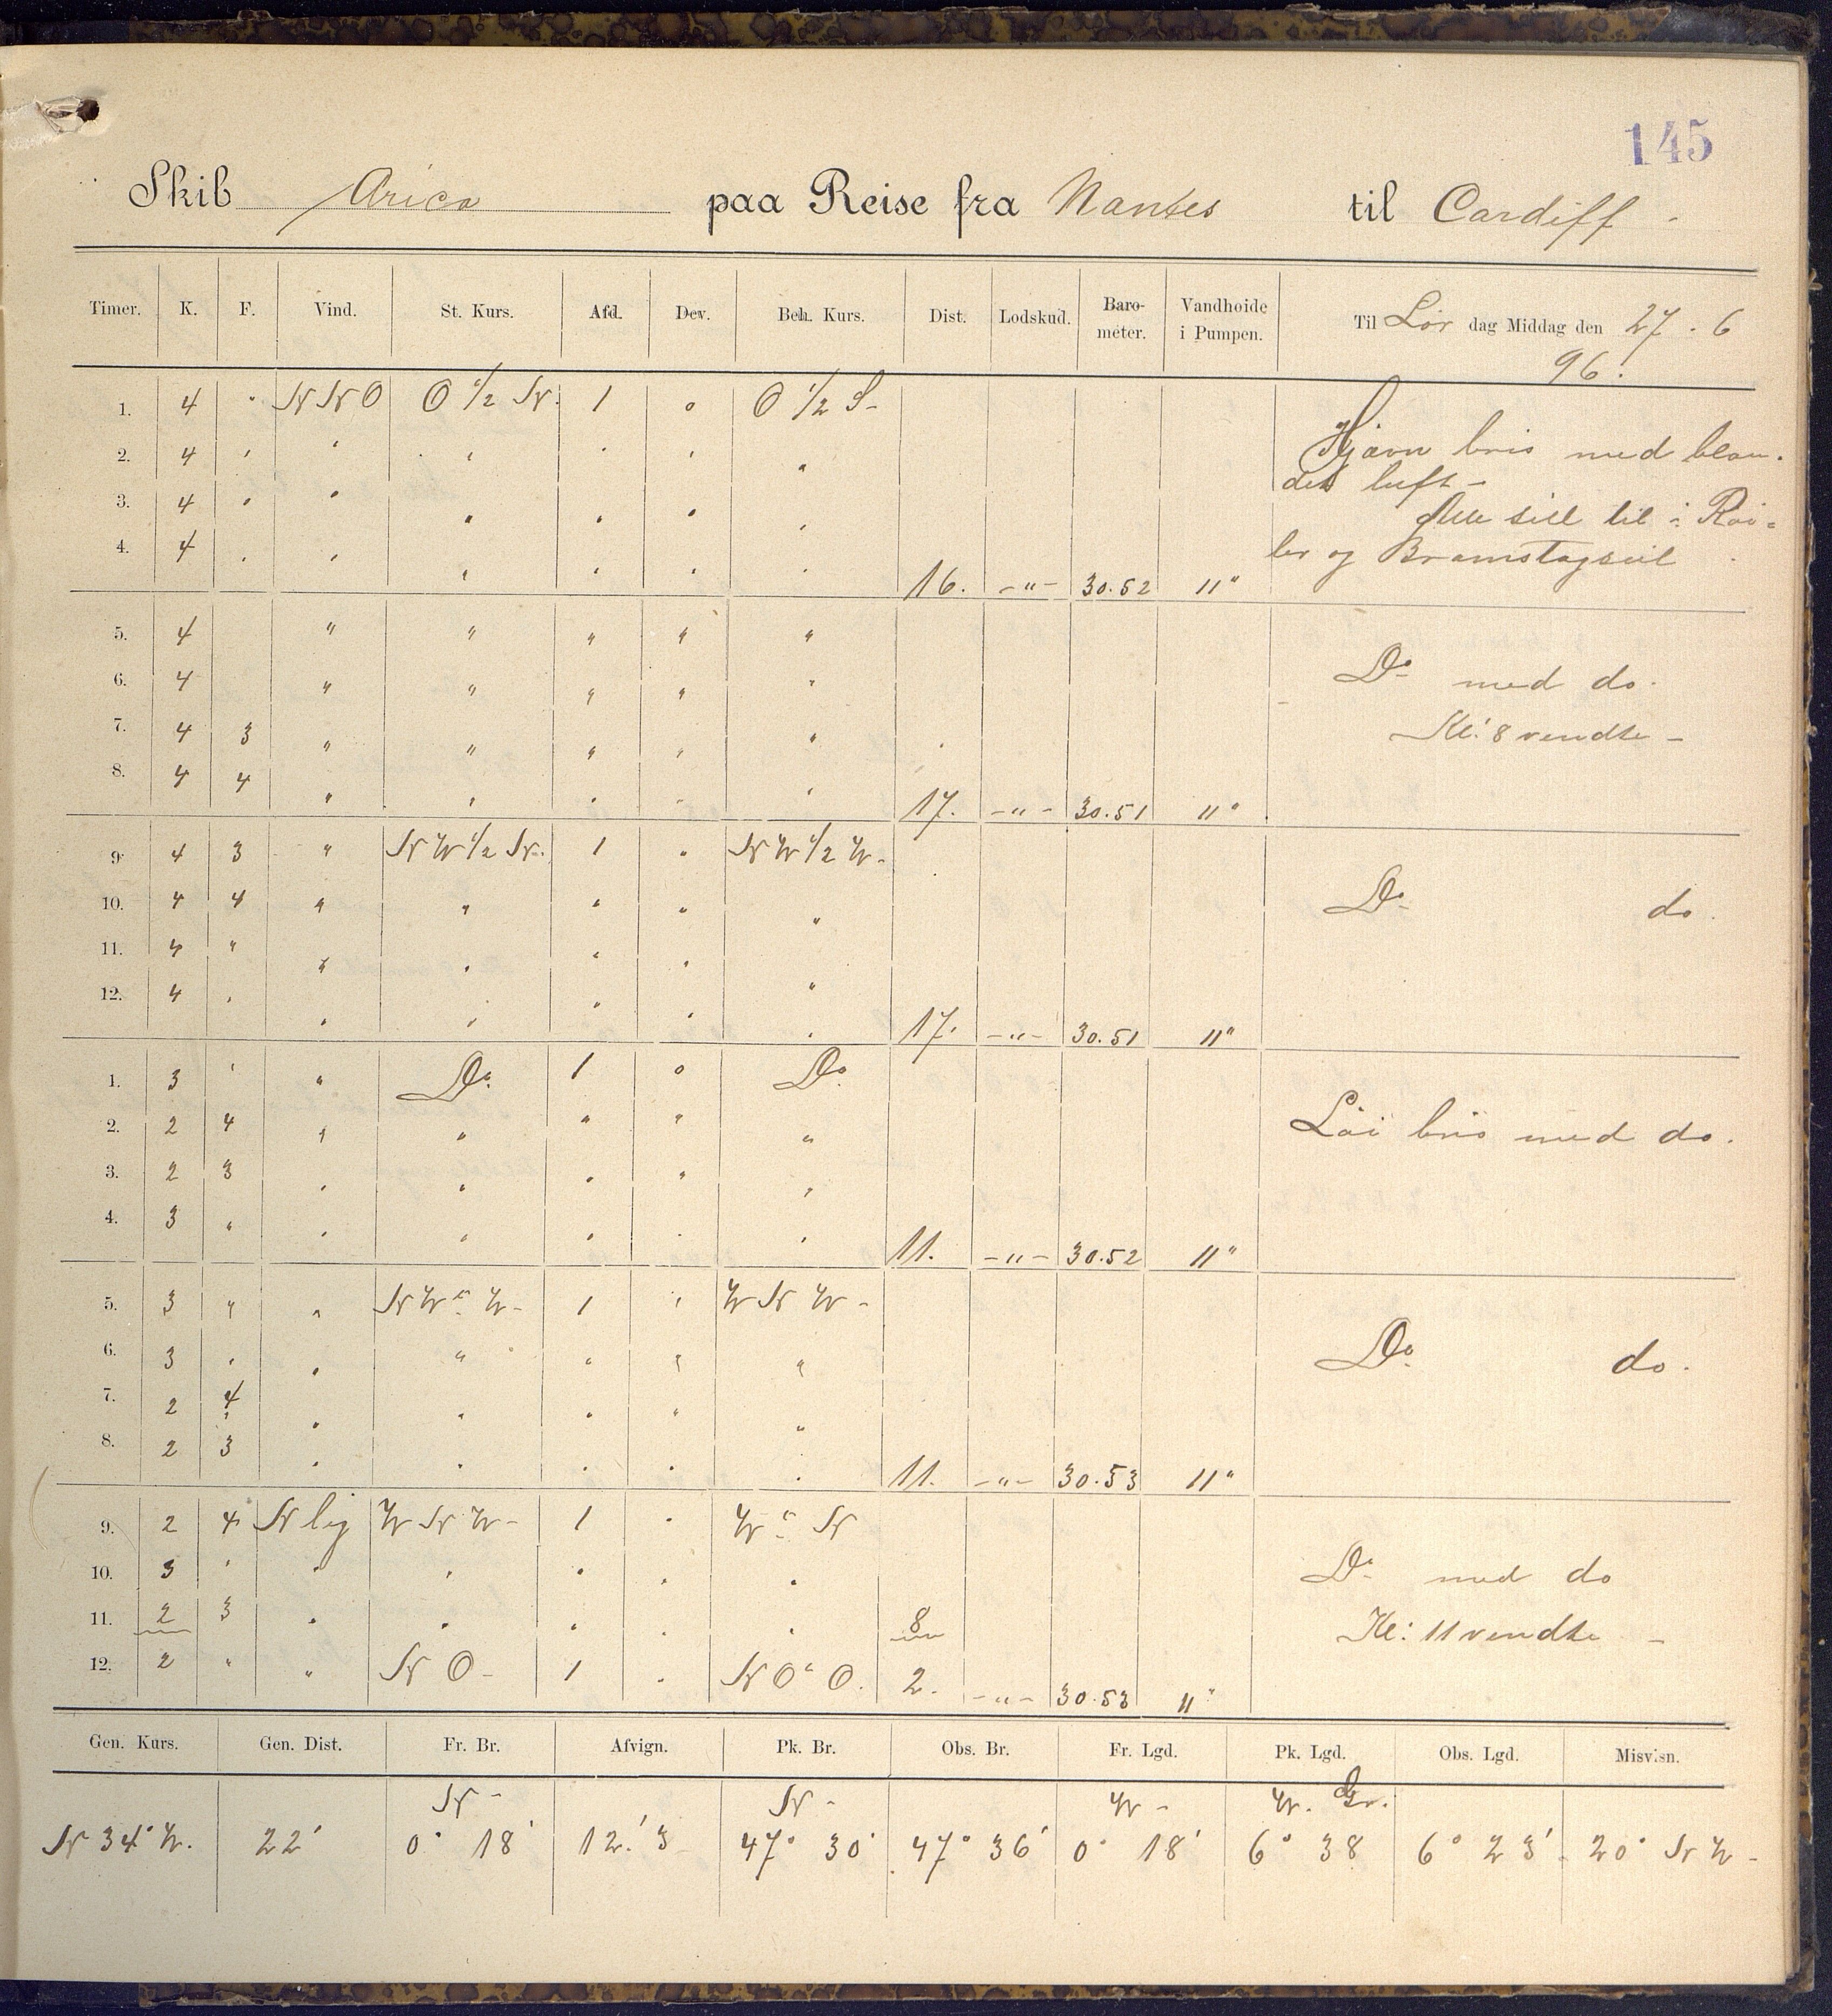 145
Skib Arica paa Reise fra Nantes til Cardiff.
Timer. K. F. Vind. St. Kurs. Afd. Dev. Beh. Kurs. Dist. Lodskud. Baro-meter. Vandhoide i Pumpen. Til Lör dag Middag den 27. 6 96.
1. 4 " NNO O 1/2 N. 1 0 O 1/2 S- Hjævn bris med blan-
2. 4 " " " " " " det luft -
3. 4 " " " " " " Alle seil til i Röi-
4. 4 " " " " " " 16. -"- 30.52 11" ler og Bramstagseil
5. 4 " " " " "
6. 4 " " " " " Do med do.
7. 4 3 " " " " " Kl: 8 vendte -
8. 4 4 " " " " " 17. -"- 30.51 11"
9. 4 3 " NW 1/2 N. 1 " NW 1/2 W-
10. 4 4 " " " " " Do do.
11. 4 " " " " " "
12. 4 " " " " " " 17. -"- 30.51 11"
1. 3 " " Do 1 0 Do
2. 2 4 " " " " " Löi bris med do.
3. 2 3 " " " " "
4. 3 " " " " " " 11. -"- 30.52 11"
5. 3 " " NW " W- 1 " WNW-
6. 3 " " " " " " Do do.
7. 2 4 " " " " "
8. 2 3 " " " " " 11. -"- 30.53 11"
9. 2 4 N lig WNW- 1 " W " N
10. 3 " " " " " " Do med do
11. 2 3 " " " " " 8 Kl: 11 vendte -
12. 2 " " NO- 1 " NO " O. 2. -"- 30.53 11"
Gen. Kurs. Gen. Dist. Fr. Br. Afvign. Pk. Br. Obs. Br. Fr. Lgd. Pk. Lgd. Obs. Lgd. Misvisn.
N- N- W- W. Gr.
N 34° W. 22' 0° 18' 12.'3 47° 30' 47° 36' 0° 18' 6° 38 6° 23' 20° NW-